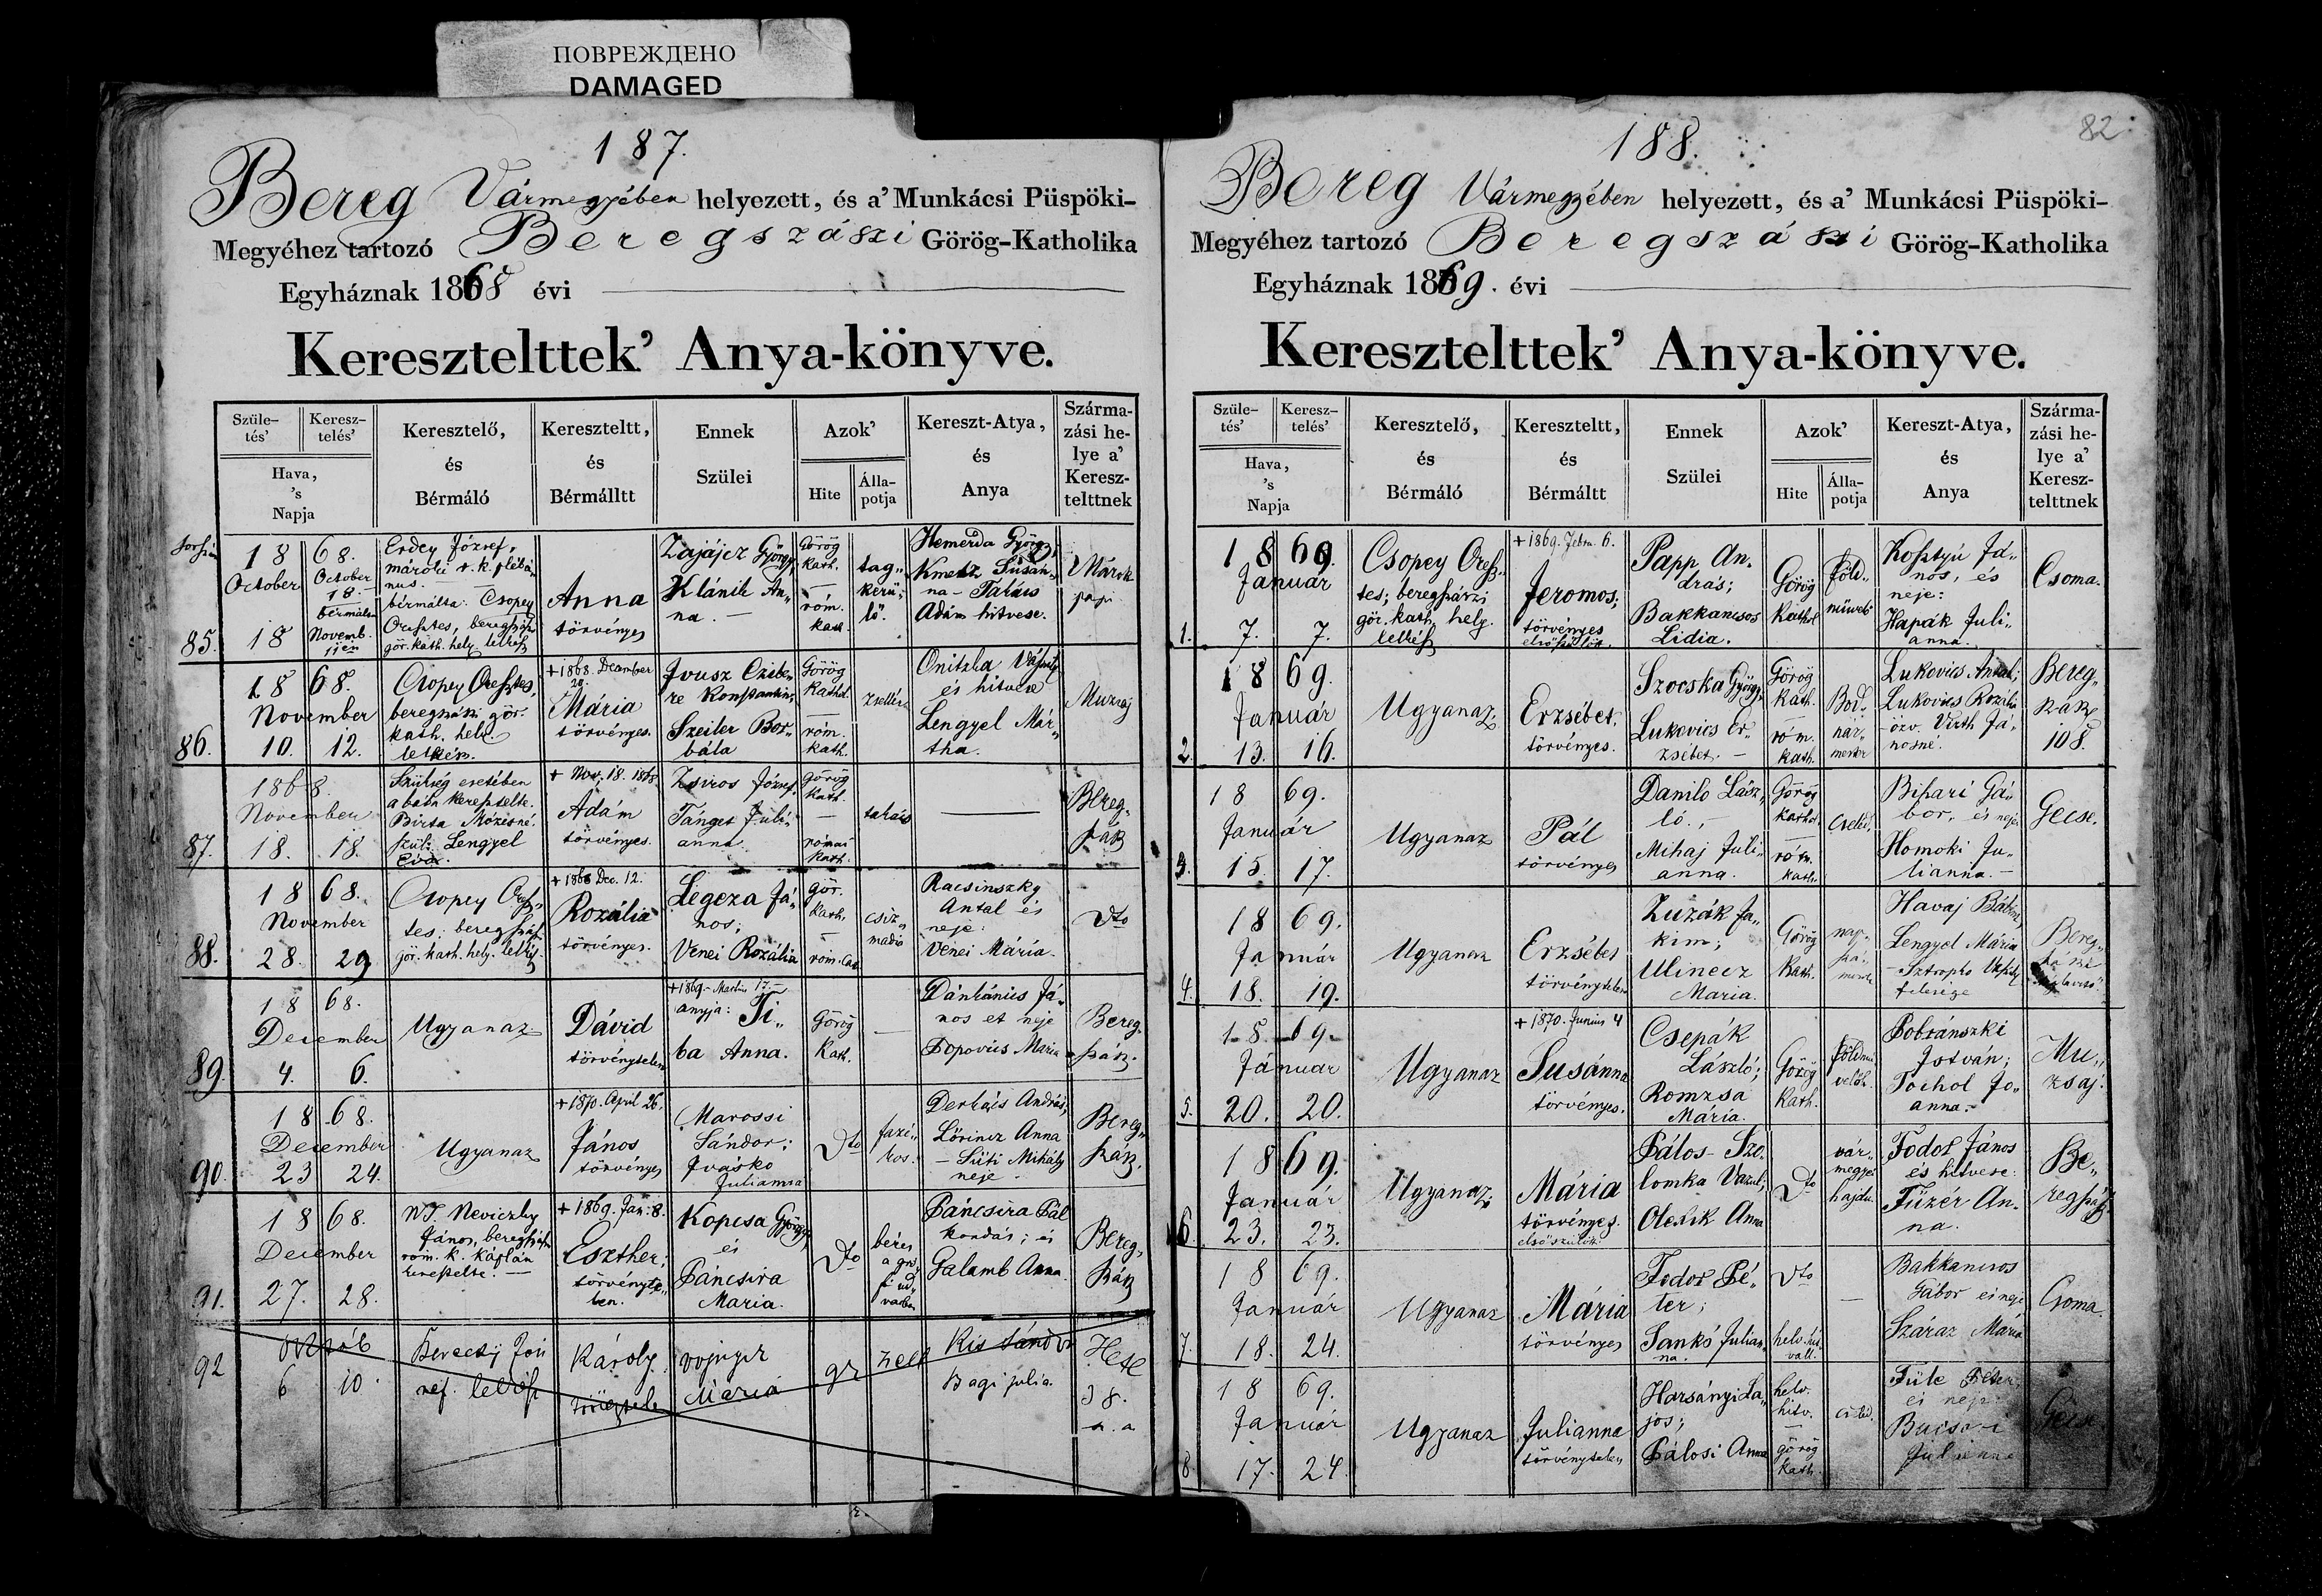 ПОВРЕЖДЕНО
DAMAGED
187.
Bereg Vármegyében helyezett, és a' Munkácsi Püspöki-
Megyéhez tartozó Beregszászi Görög-Katholika
Egyháznak 1868 évi
Keresztelttek' Anya-könyve.
Szüle-
tés'
Keresz-
telés'
Hava,
's
Napja
Keresztelő,
és
Bérmáló
Kereszteltt,
és
Bérmálltt
Ennek
Szülei
Azok'
Hite
Álla-
potja
Kereszt-Atya,
és
Anya
Szárma-
zási he-
lye a'
Keresz-
telttnek
85.
1868.
October
18
October
18.
bérmálta
Novemb.
Erdey József
bérmálta: Csopey
gör. kath. hely. lelkész
Anna
törvényes
Zajájcz György
Klánik An„
na.
Görög
kath.
róm.
kath.
tag„
kerü„
lő.
Hemerda György
Kmetz Susan„
na - Takács
Adám hitvese.
Márok
papi
86.
1868.
November
10. 12.
Csopey Oresztes,
beregszászi gör.
kath. hely.
lelkész.
+ 1868. December
Mária
törvényes.
Szeiler Bor„
bála
Görög
Kathol.
róm.
kath.
zsellér
és hitvese
Lengyel Már„
tha.
Muzsaj
87.
1868.
November
18. 18.
Szükség esetében
a bába keresztelte.
szül: Lengyel
Éva.
+ Nov. 18. 1868
Adám
törvényes.
Zsiros József
Tánget Juli„
anna.
görög
kath.
római
kath.
takács
Bereg„
szász
88.
1868.
November
28. 29
Csopey Oresz„
tes; beregszász
gör. kath. hely. lelkész
+ 1868 Dec. 12.
Rozália
törvényes.
Legeza Já„
nos;
Venei Rozália
gör.
kath.
róm. cat
csiz„
madia
Racsinszky
Antal és
neje
Venei Mária.
Dto
89.
1868.
December
4. 6.
Ugyanaz
Dávid
törvénytelen
+ 1869 - Martius 17. -
anyja: Ti„
ba Anna.
Görög
Kath.
nos et neje
Popovics Maria
Bereg„
szász.
90.
1868.
December
23 24.
Ugyanaz
+ 1870. April 26.
János
törvényes
Marossi
Sándor;
Ivaskó
Julianna
Dto
fazе„
kas.
Lőrincz Anna
- Süti Mihály
neje.
Bereg„
szász.
91.
1868.
December
27. 28.
NT. Neviczky
János, beregszászi
róm. k. káplán
keresztelte.
+ 1869. Jan. 8.
Eszther;
törvényte„
len.
Kopcsa György
és
Páncsira
Maria.
Dto
béres
Páncsira Pál
kondás; és
Galamb Anna.
Bereg„
szász
92
6 10.
ref. lelkész
Károly
Maria
gr
zsell
Kis Sándor
Bagi julia.
Hete
38.
82
188.
Bereg Vármegyében helyezett, és a' Munkácsi Püspöki-
Megyéhez tartozó Beregszászi Görög-Katholika
Egyháznak 1869. évi
Keresztelttek' Anya-könyve.
Szüle-
tés'
Keresz-
telés'
Hava,
's
Napja
Keresztelő,
és
Bérmáló
Kereszteltt,
és
Bérmáltt
Ennek
Szülei
Azok'
Hite
Álla-
potja
Kereszt-Atya,
és
Anya
Szárma-
zási he-
lye a'
Keresz-
telttnek
1.
1869.
Január
7. 7.
Csopey Oresz„
tes; beregszászi
gör. kath. hely.
lelkész
+ 1869. Febru. 6.
Jeromos;
törvényes
elsőszülött.
Papp An„
drás;
Bakkancsos
Lidia.
Görög
Kathol
föld„
művelő
Kosztyú Já„
nos, és
neje:
Hapák Juli„
anna.
Csoma.
2.
1869.
Január
13. 16.
Ugyanaz
Erzsébet,
törvényes.
Szocska György
Lukovics Er„
zsébet. -
Görög
kath.
róm.
kath.
Lukovics Antal;
Lukovics Rozália
özv. Virth Já„
nosné.
Bereg„
szász
108.
3.
1869.
Január
15. 17.
Ugyanaz
Pál
törvényes
Danilo Lász„
ló.,
Mihaj Juli„
anna.
Görög
kathol.
róm.
kath.
cseléd,
Bihari Gá„
bor, és neje
Homoki Ju„
lianna. -
Gecse.
4.
1869.
Január
18. 19.
Ugyanaz
Erzsébet
törvénytelen
Zuzák Ja„
kim;
Ulinecz
Maria.
Görög
Kath.
nap„
szá„
mos
Lengyel Mária
felesége
Bereg„
szász
5.
1869
Január
20. 20.
Ugyanaz
+ 1870. Junius 4
Susánna
törvényes.
Csepák
László;
Romzsa
Mária.
Görög
Kath.
földmű
velők.
Dobránszki
István;
Tochol Jo„
anna.
Mu„
zsaj.
6.
1869.
Január
23. 23.
Ugyanaz
Mária
törvényes.
elsőszülött.
Pálos-Szo„
lomka Vazul;
Olexik Anna
Dto
vár„
megyei
hajdu.
Fodor János
és hitvese.
Füzér An„
na.
Be„
regszász
7.
1869.
Január
18. 24.
Ugyanaz
Mária
törvényes
Fodor Pé„
ter;
Sankó Julian„
na.
Dto
helv. hit
vall.
Bakkancsos
Gábor és neje
Száraz Mária
Csoma.
8
1869.
Január
17. 24.
Ugyanaz
Julianna
törvénytelen
Harsányi La„
jos;
Pálosi Anna
helv.
hitv.
görög
kath.
cseléd.
Füle Péter
és neje
Julianna